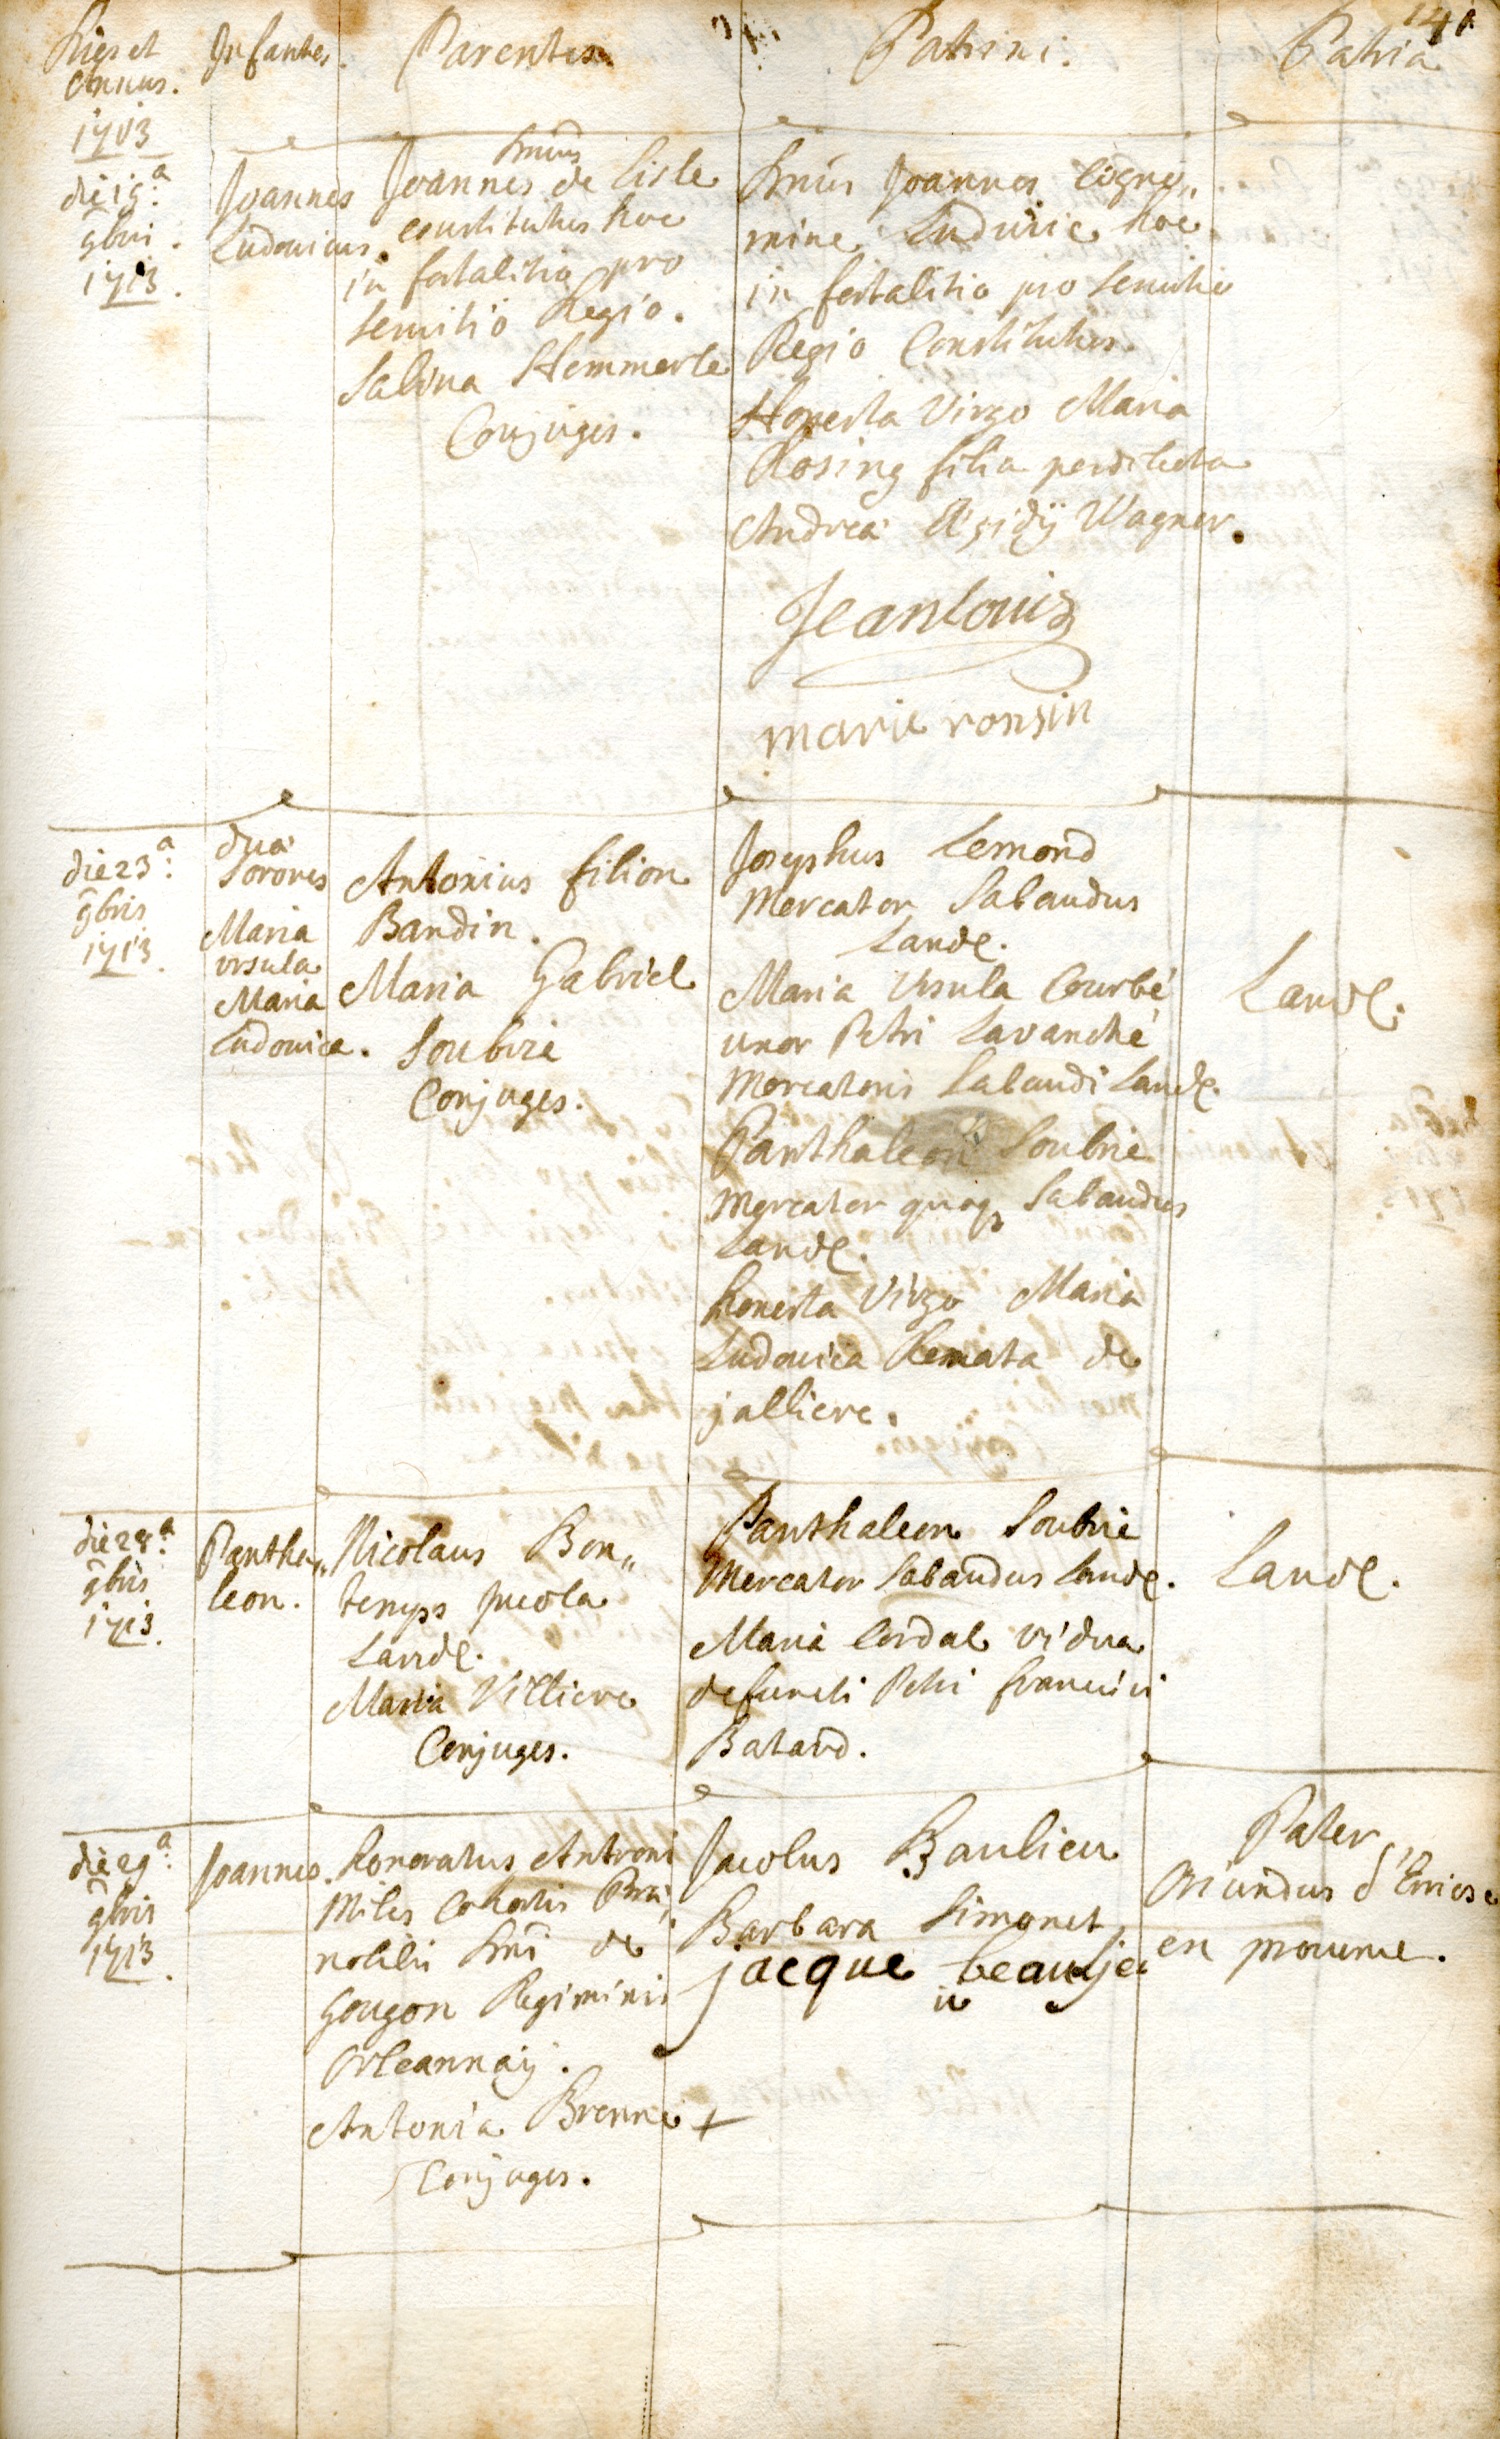 141
Dies et
Annus.
Infantes.
Parentes
Patrini.
Patria
1713
die 19ª:
9bris.
1713.
Joannes
Ludovicus.
Dnus
Joannes de Lisle
constitutus hoc
in fortalitio pro
servitio Regio.
Sabina Hemmerle
Conjuges.
Dnus Joannes Cogno„
mine Luduvic hoc
in fortalitio pro servitio
Regio Constitutus.
Honesta Virgo Maria
Rosing filia perdilecta
Andreæ Ægidÿ Wagner.
Jean Louis
marie ronsin
die 23ª:
9bris
1713.
duæ
Sorores
Maria
ursula
Maria
Ludovica.
Antonius filion
Bandin.
Maria Gabriel
Soubrie
Conjuges.
Josephus Lemond
Mercator Sabaudus
Land.
Maria Ursula Courbé
uxor Petri Lavanché
Mercatoris Sabaudi Land.
Panthaleon Soubrie
Mercator quoq Sabaudus
Land.
honesta Virgo Maria
Ludovica Renata de
jalliere.
Land.
die 28ª:
9bris
1713.
Pantha„
leon.
Nicolaus Bon„
temps Incola
Land.
Maria Villiere
Conjuges.
Panthaleon Soubrie
Mercator Sabaudus Land.
Maria Cordal vidua
defuncti Petri francisci
Batard.
Land.
die 29ª:
9bris
1713.
Joannes.
honoratus Antroni
Miles Cohortis Præ
nobilis Dni de
Gougon Regiminis
Orleannaij.
Antonia Brenne +
Conjuges.
Jacobus Baulieu
Barbara Simonet
jacque beaulje
u
Pater
Oriundus d'Erries
en provence.